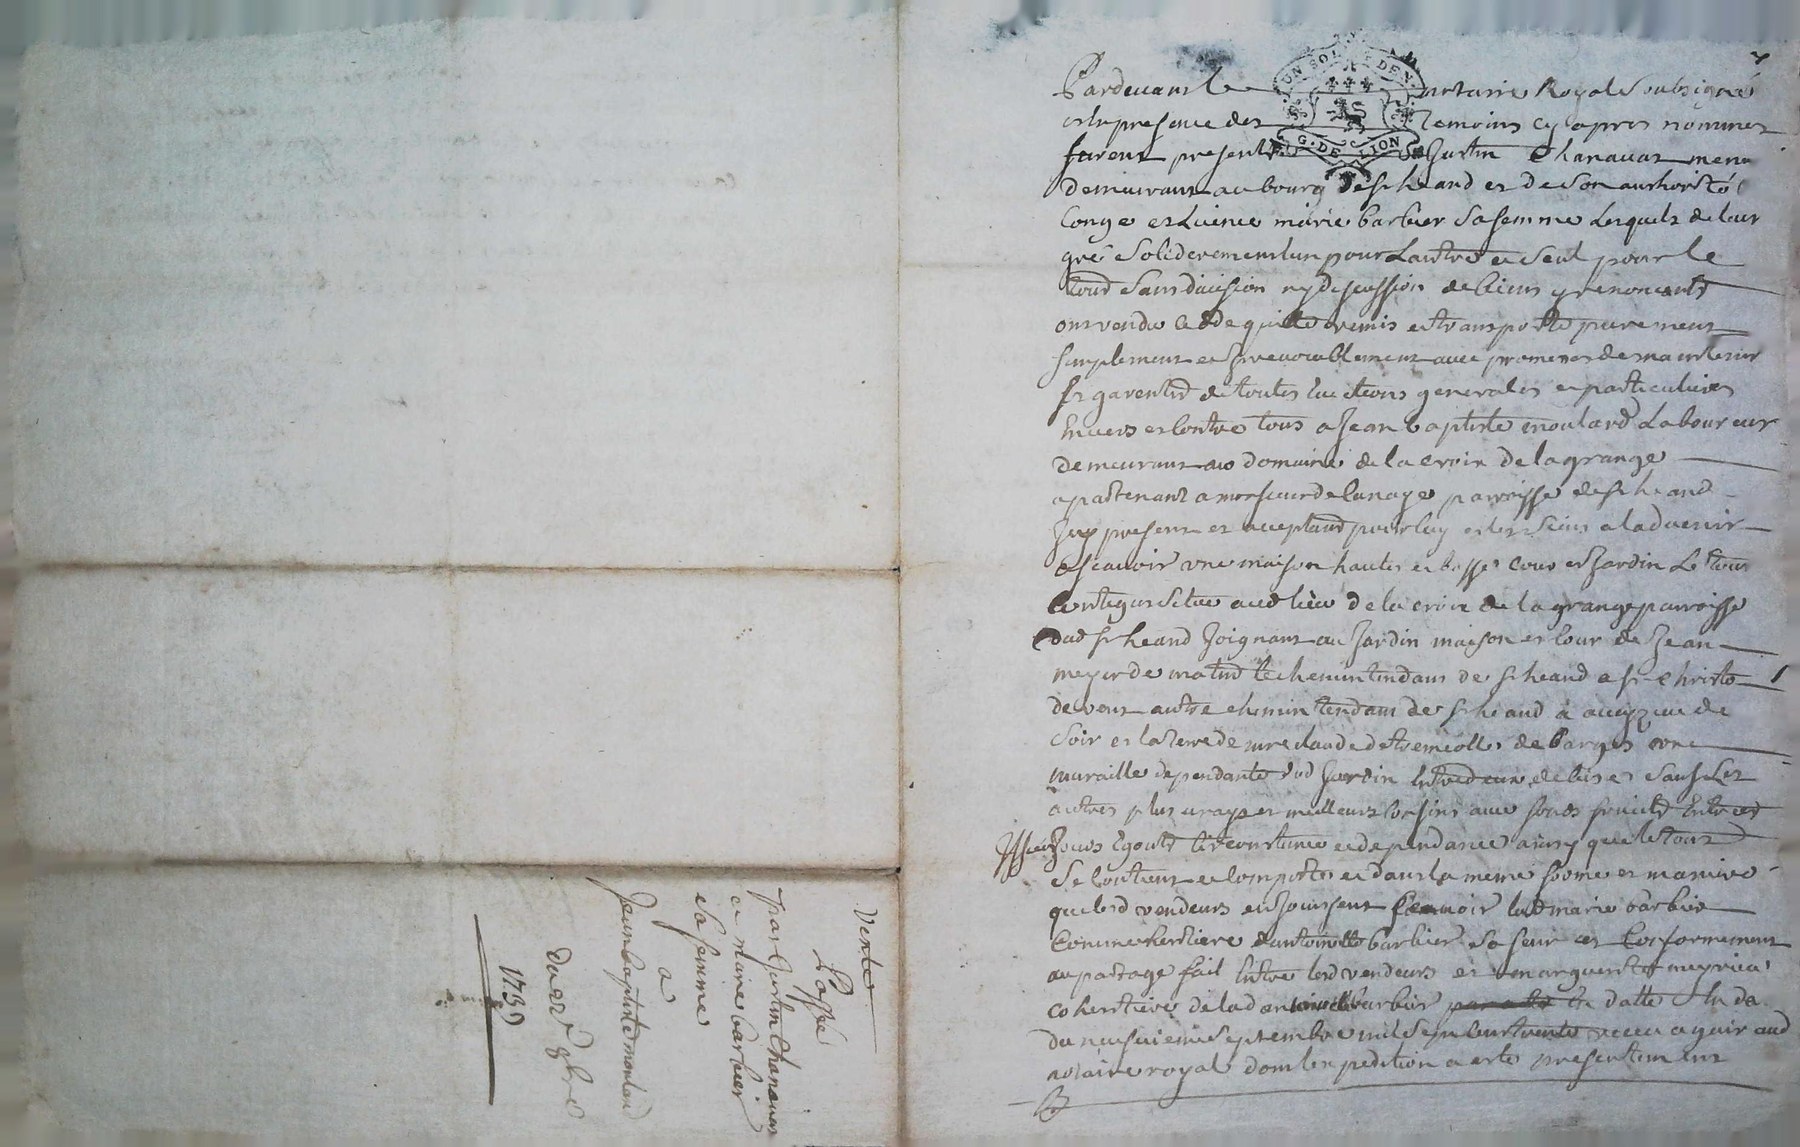 Vente
passée
par Justin Chanauat
et marie barbier
sa femme
a
Jean baptiste moulard
du 20 8bre
1737
UN SOL DEN
G. DE LION
Pardevant le notaire Royal soubsigné
et en presence des temoins cy apres nommes
furent present Justin Chanauat
demeurant au bourg de st heand et de son authorité
conge et licence marie barbier sa femme lesquels de leur
gré solidairement lun pour Lautre et seul pour le
tout sans division ny discussion de biens y renoncants
ont vendu cedé quitté remis et transporté purement
simplement et irrevocablement avec promesse de maintenir
et garentir de toutes evictions generales et particulieres
envers et contre tous a Jean baptiste moulard Laboureur
demeurant au domaine de la croix de la grange
apartenant a monsieur de lanaye parroisse de st heand
Icy present et acceptant pour luy et les siens a ladvenir
ascavoir une maison haute et basse cour et Jardin Le tout
contigus situe aud lieu de la croix de la grange parroisse
dud st heand Joignant au Jardin maison et cour de Jean
de matin le chemin tendant de st heand a st Christo
de vent autre chemin tendant de st heand a de
soir et la terre de de Barges une
muraille dependante dud Jardin entredeux de bize sauf Les
autres plus vrays et meilleurs confins avec fonds entrées
Issues Egouts circonstance et dependance ainsy que le tout
se contient et comporte et dans la meme forme et maniere
que lesd vendeurs en Jouissent scavoir lad marie barbier
Comme heritiere dantoinette barbier sa seur et Conformement
au partage fait entre lesd vendeurs et marguerite
coheritiere de lad antoinette barbier en datte
du neufvieme septembre mil sept cent trente recu aud
notaire royal dont lexpedition a esté presentement